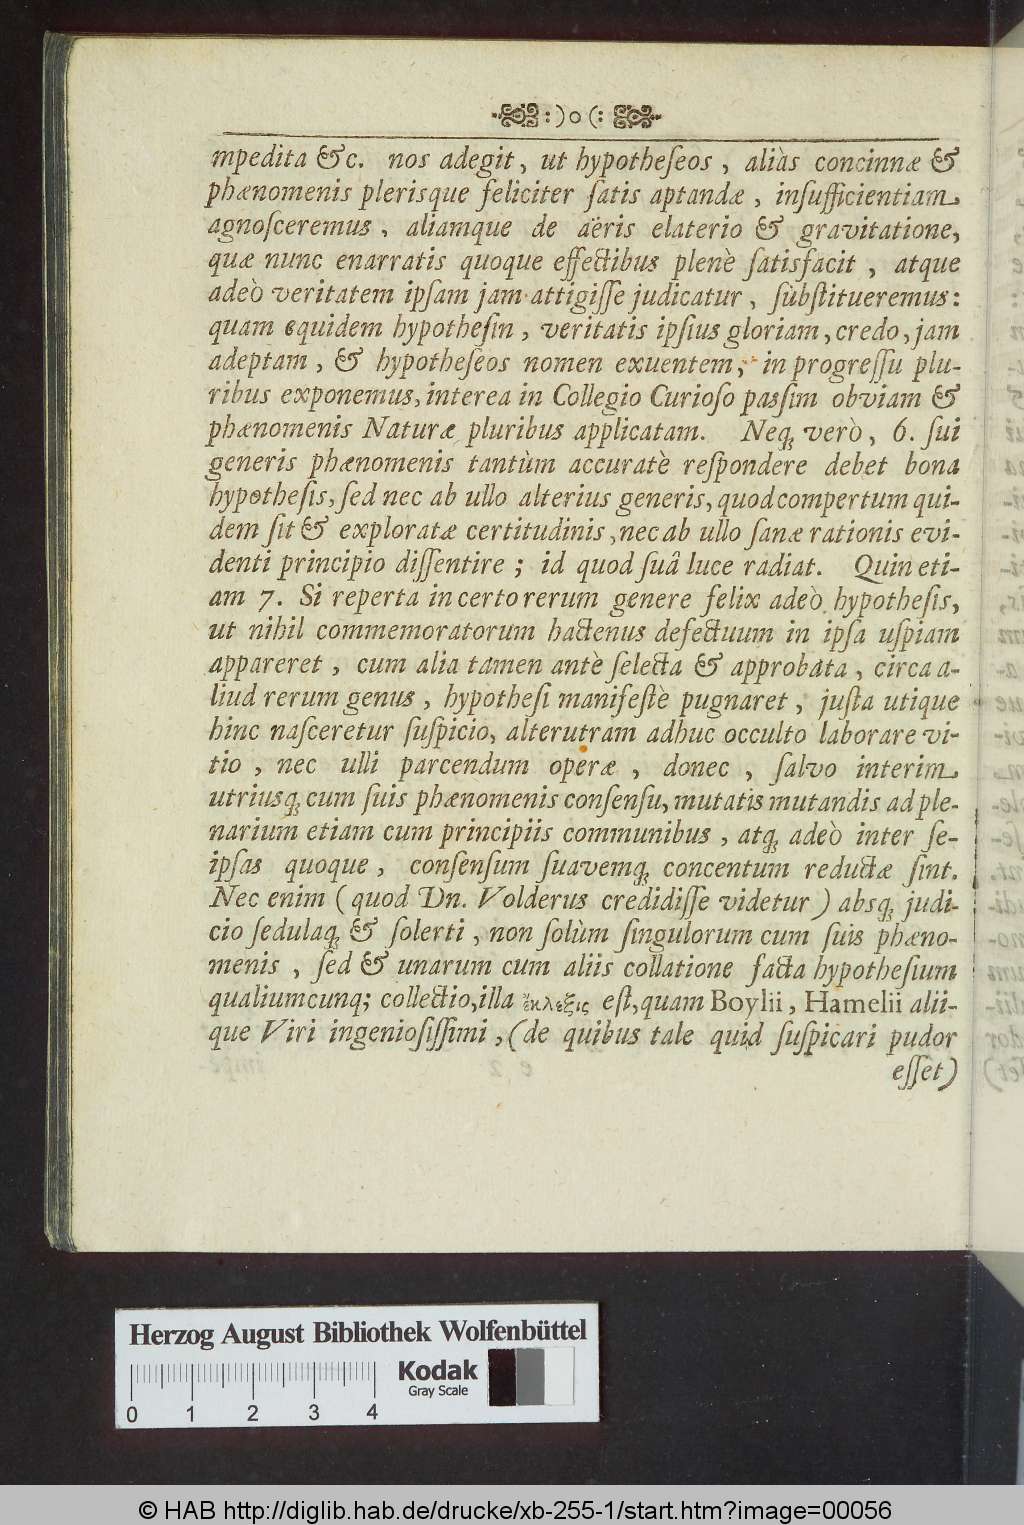 :)o(:
mpedita &c. nos adegit, ut hypotheſeos, aliàs concinnæ &
phænomenis plerisque feliciter ſatis aptandæ, inſufficientiam
agnoſceremus, aliamque de aëris elaterio & gravitatione,
quæ nunc enarratis quoque effectibus plenè ſatisfacit, atque
adeò veritatem ipſam jam attigiſſe judicatur, ſubſtitueremus:
quam equidem hypotheſin, veritatis ipſius gloriam, credo, jam
adeptam, & hypotheſeos nomen exuentem, in progreſſu plu-
ribus exponemus, interea in Collegio Curioſo paſsim obviam &
phænomenis Naturæ pluribus applicatam. Neq; verò, 6. ſui
generis phænomenis tantùm accuratè reſpondere debet bona
hypotheſis, ſed nec ab ullo alterius generis, quod compertum qui-
dem ſit & exploratæ certitudinis, nec ab ullo ſanæ rationis evi-
denti principio diſſentire; id quod ſuâ luce radiat. Quin eti-
am 7. Si reperta in certo rerum genere felix adeò hypotheſis,
ut nihil commemoratorum hactenus defectuum in ipſa uſpiam
appareret, cum alia tamen antè ſelecta & approbata, circa a-
liud rerum genus, hypotheſi manifeſtè pugnaret, juſta utique
hinc naſceretur ſuſpicio, alterutram adhuc occulto laborare vi-
tio, nec ulli parcendum operæ, donec, ſalvo interim
utriusq; cum ſuis phænomenis conſenſu, mutatis mutandis ad ple-
narium etiam cum principiis communibus, atq; adeò inter ſe-
ipſas quoque, conſenſum ſuavemq; concentum reductæ ſint.
Nec enim (quod Dn. Volderus credidiſſe videtur) absq; judi-
cio ſedulaq; & ſolerti, non ſolùm ſingulorum cum ſuis phæno-
menis, ſed & unarum cum aliis collatione facta hypotheſium
qualiumcunq; collectio, illa ἔκλεξις eſt, quam Boylii, Hamelii alii-
que Viri ingenioſiſſimi, (de quibus tale quid ſuſpicari pudor
eſſet)
Herzog August Bibliothek Wolfenbüttel
Kodak
Gray Scale
0 1 2 3 4
© HAB http://diglib.hab.de/drucke/xb-255-1/start.htm?image=00056